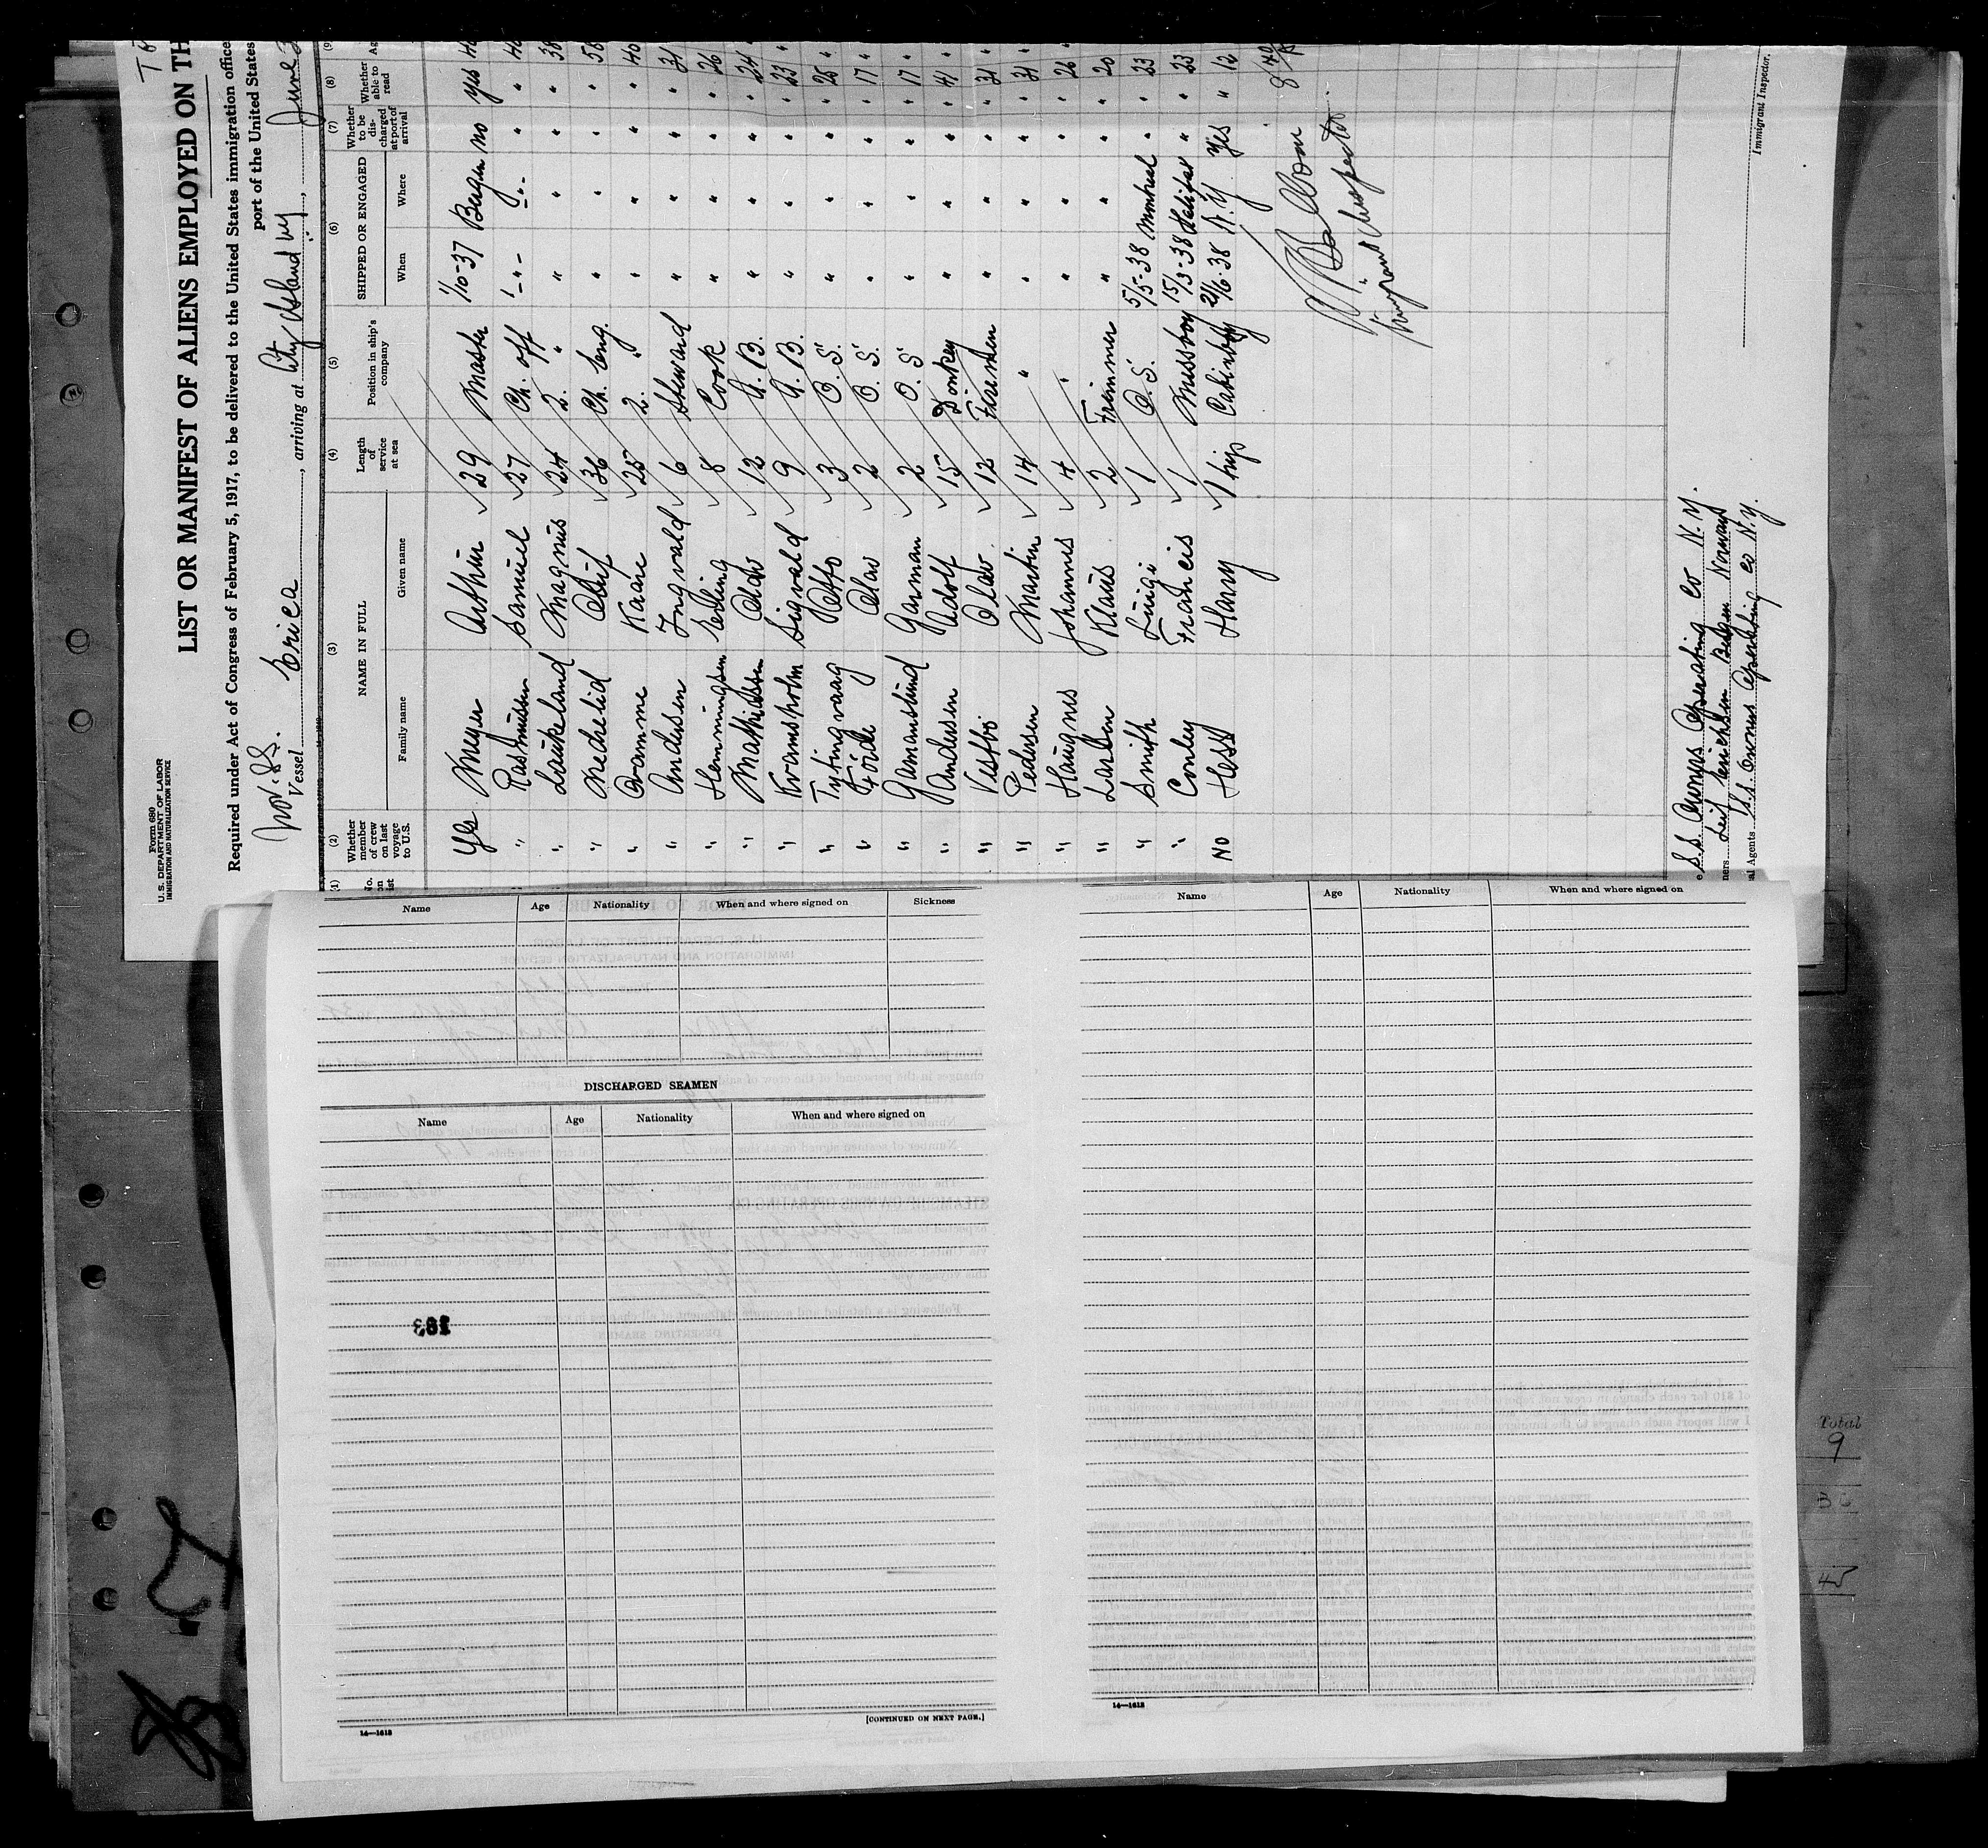 Form 680
U.S. DEPARTMENT OF LABOR
IMMIGRATION AND NATURALIZATION SERVICE
LIST OR MANIFEST OF ALIENS EMPLOYED ON TH
Required under Act of Congress of February 5, 1917, to be delivered to the United States immigration office
port of the United States
Nor. SS.
Vessel Erica, arriving at City Island NY, June
(2) (3) (4) (5) (6) (7) (8)
Whether member of crew on last voyage to U.S. NAME IN FULL Family name Given name Length of service at sea Position in ship's company SHIPPED OR ENGAGED When Where Whether to be discharged at port of arrival Whether able to read
Yes Meyer Arthur 29 Master 1/10-37 Bergen no yes
" Rasmussen Samuel 27 Ch. off " " " "
" Laukeland Magnus 24 2. " " " " " 38
" Medhelid Oluf 36 Ch. Eng. " " " " 58
" Kvamme Kaare 25 2. " " " " " 40
" Andersen Ingvald 6 Steward " " " " 31
" Hemmingsen Erling 8 Cook " " " " 26
" Mathiassen Olav 12 A.B. " " " " 24
" Kramsholm Sigvald 9 A.B. " " " " 23
" Tytingvaag Otto 3 O.S. " " " " 25
" Förde Olav 2 O.S. " " " " 17
" Garmanslund Garman 2 O.S. " " " " 17
" Andersen Adolf 15 Donkey " " " " 41
" Vestbö Olav 12 Firemen " " " " 31
" Pedersen Martin 14 " " " " " 31
" Haugnes Johannes 4 " " " " " 26
" Larsen Klaus 2 Trimmer " " " " 20
" Smith Luigi 1 O.S. 5/5-38 Montreal " " 23
" Conley Francis 1 Messboy 15/3-38 Halifax " " 23
No Hess Harry 1 trip Cabinboy 21/6-38 N.Y. Yes " 12
Immigrant Inspector
S.S. Owners Operating Co N.Y.
Leif Erichsen Bergen Norway
al Agents S.S. Owners Operating Co N.Y.
Immigrant Inspector.
Name Age Nationality When and where signed on Sickness
DISCHARGED SEAMEN
Name Age Nationality When and where signed on
14—1613
[CONTINUED ON NEXT PAGE.]
Name Age Nationality When and where signed on
14—1613
Total
9